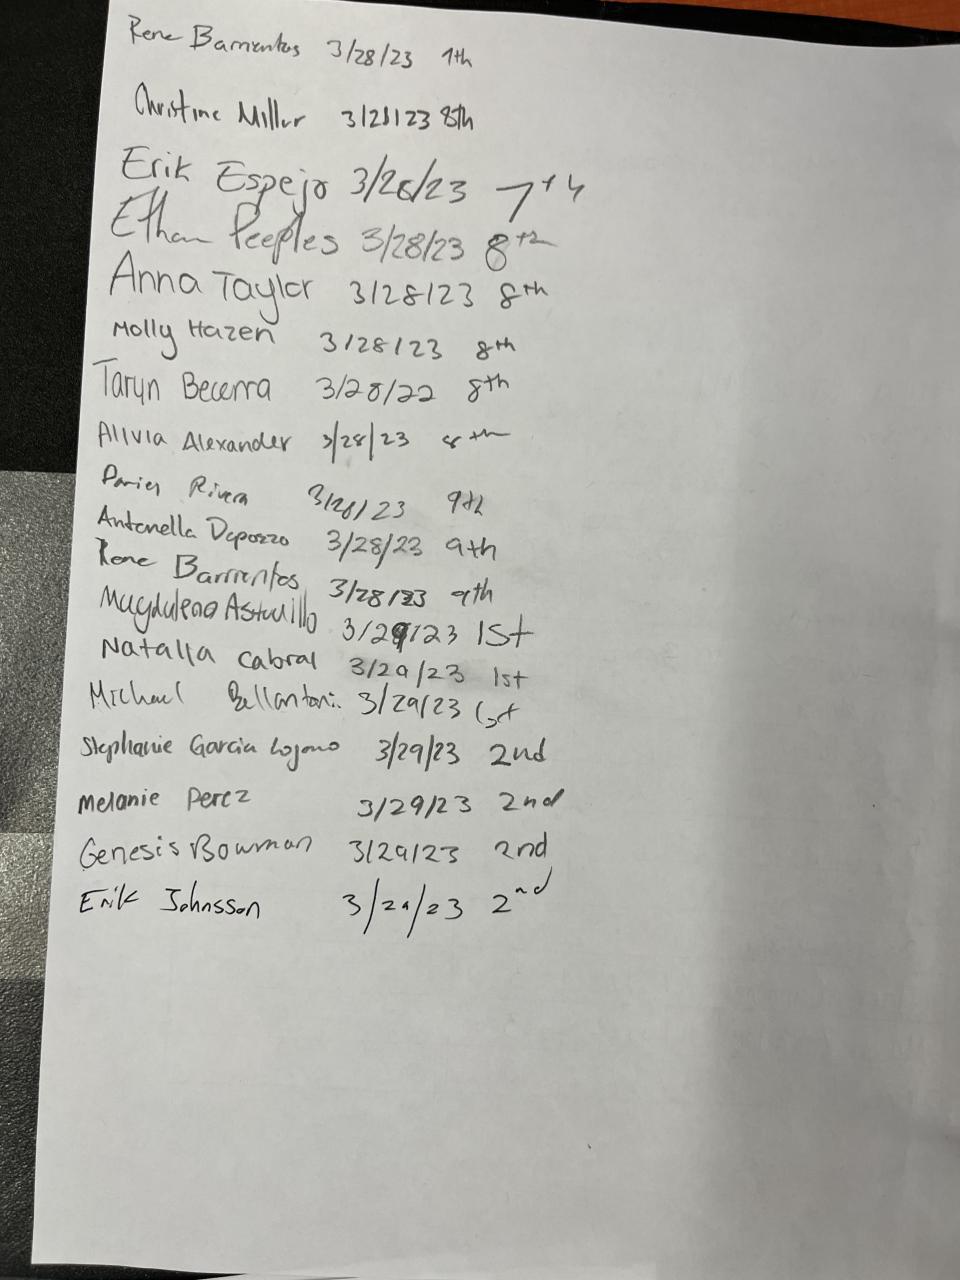 Rene Barrientos 3/28/23 9th
Christine Miller 3/28/23 8th
Erik Espejo 3/28/23 7th
Ethan Peeples 3/28/23 8th
Anna Taylor 3/28/23 8th
Molly Hazen 3/28/23 8th
Taryn Becerra 3/28/22 8th
Alivia Alexander 3/28/23 8th
Rivera 3/28/23 9th
Antonella 3/28/23 9th
Rene Barrientos 3/28/23 9th
Magdalena Astudillo 3/29/23 1st
Natalia Cabral 3/29/23 1st
Michael Bellantoni 3/29/23 1st
Stephanie Garcia Lozano 3/29/23 2nd
Melanie Perez 3/29/23 2nd
Genesis Bowman 3/29/23 2nd
Erik Johnsson 3/29/23 2nd